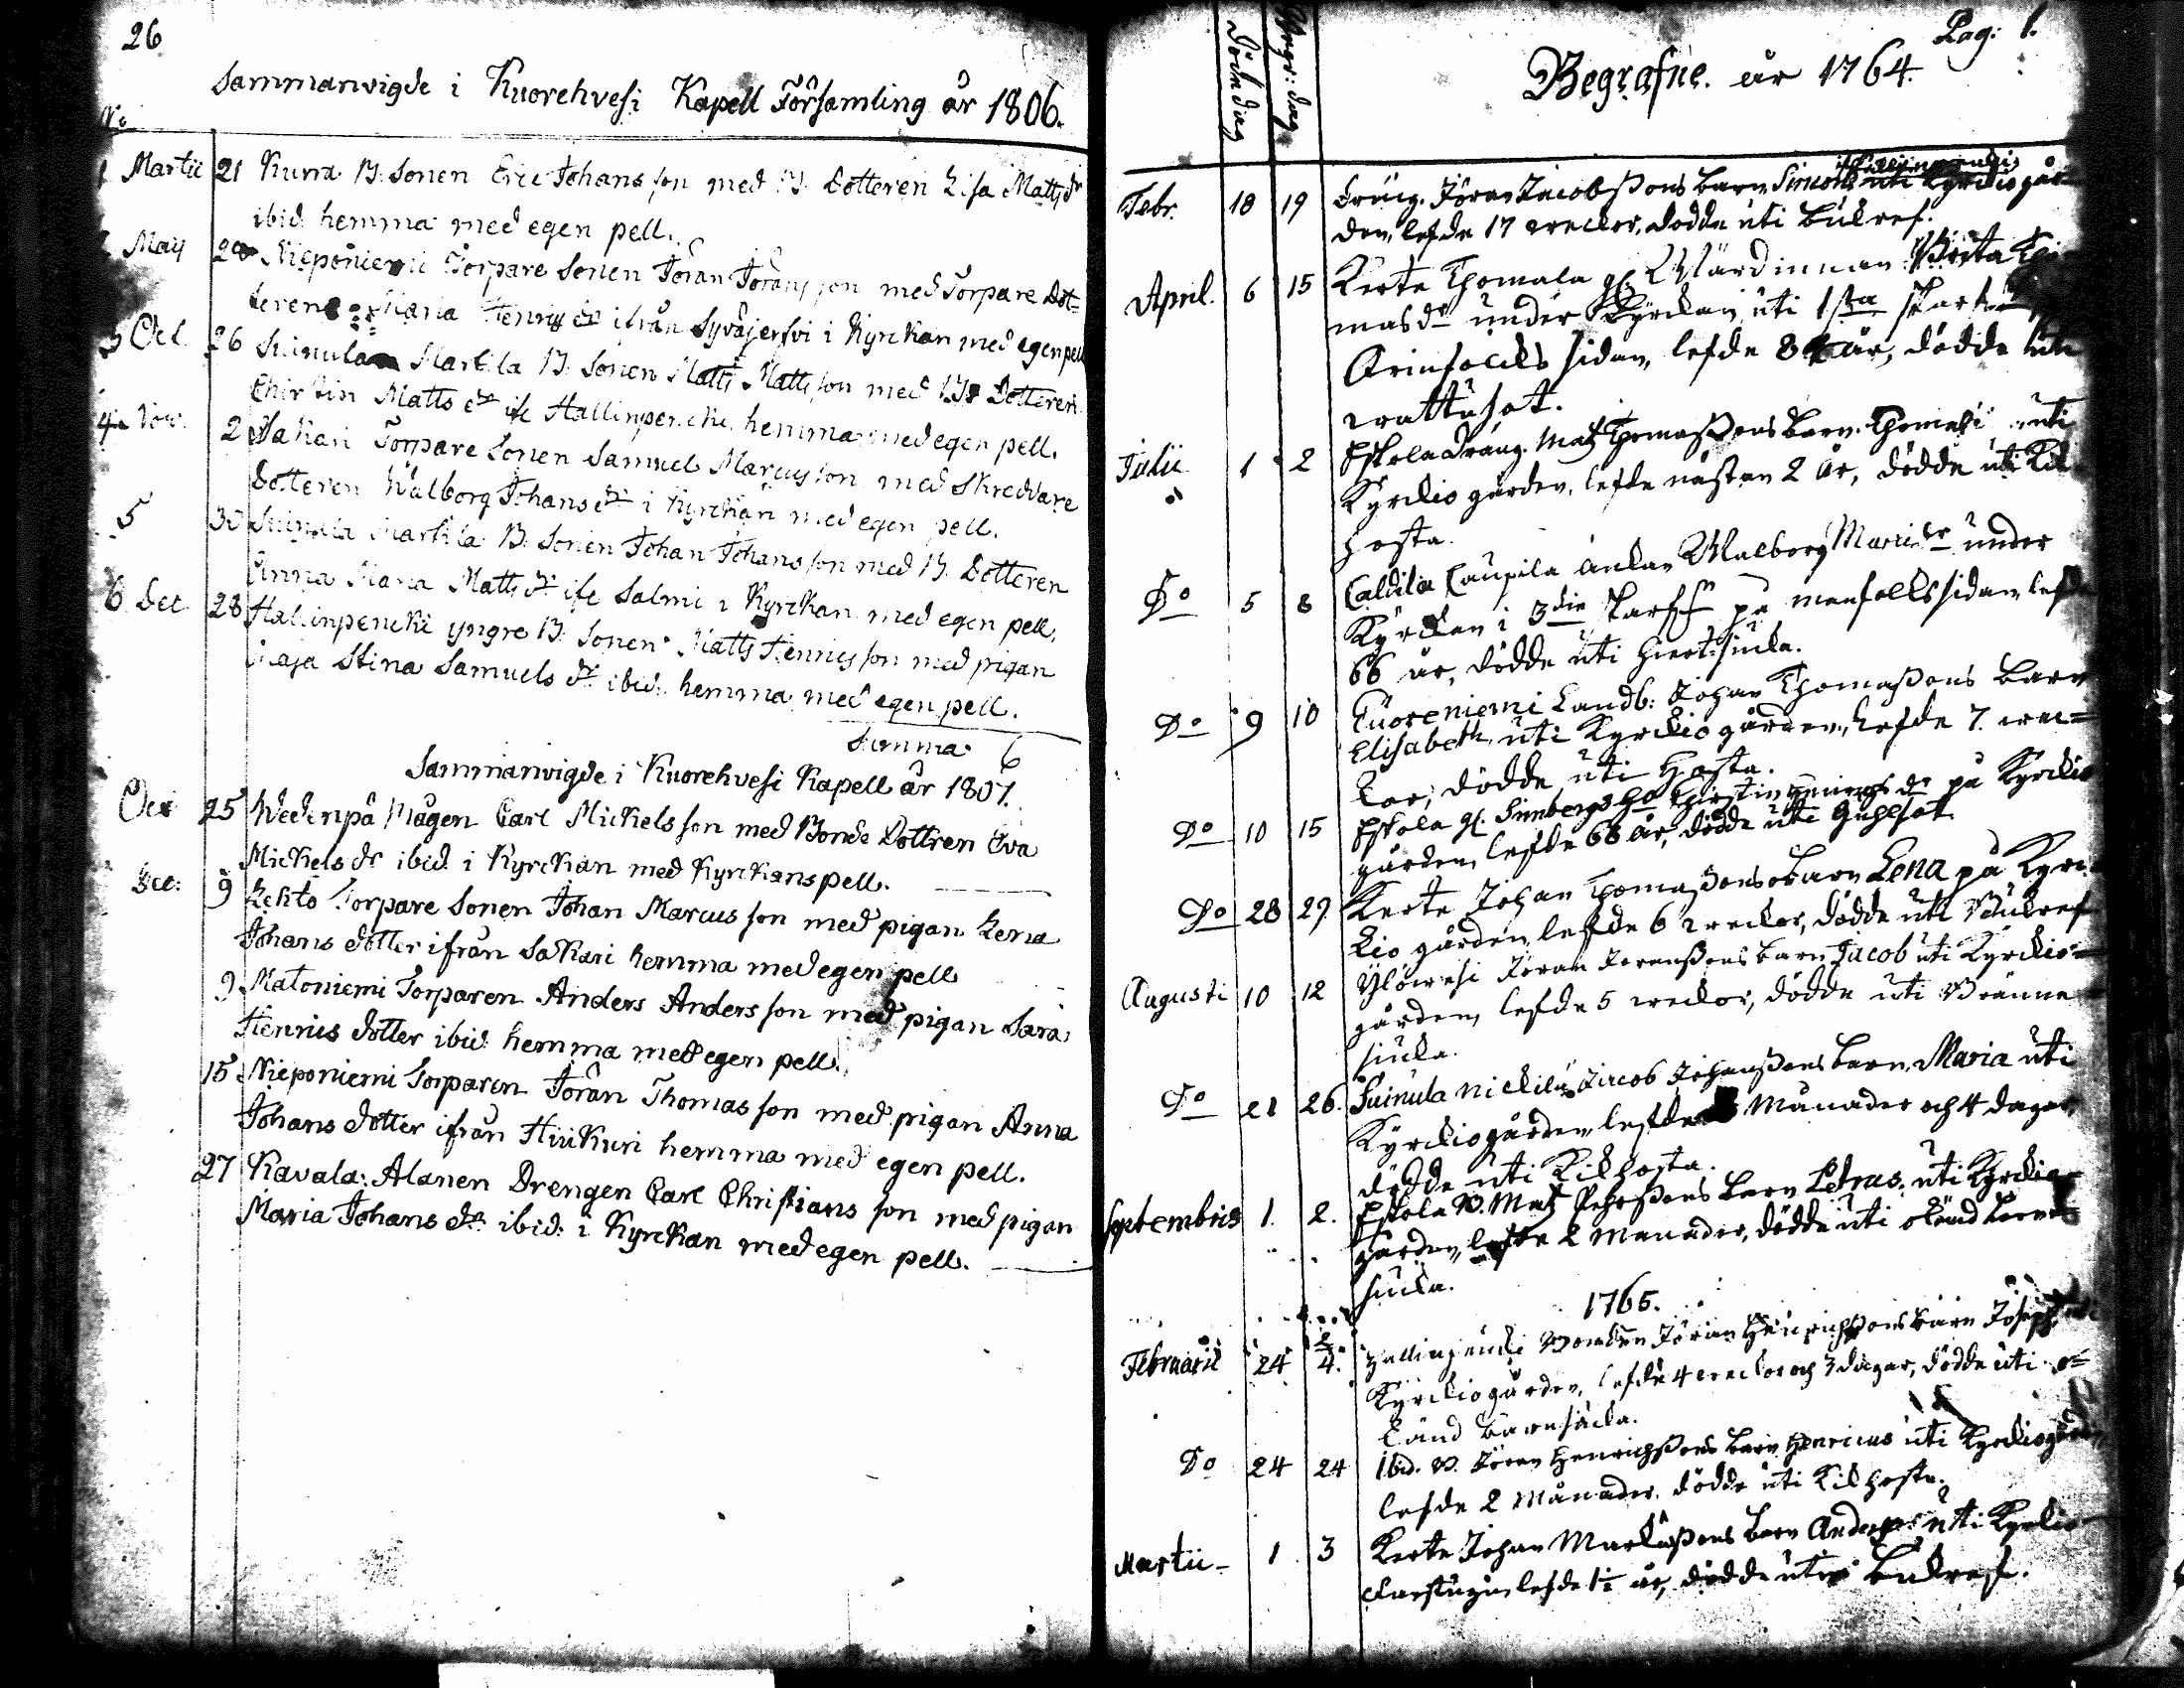 26
Sammanvigde i Kuorehvesi Kapell Församling år 1806.
No
1 Martii 21 Kurra B. Sonen Eric Johans son med B. Dotteren Lisa Matts dr
ibid. hemma med egen pell.
2 Maij 29 Nieponiemi Torpare Sonen Jöran Jörans son med Torpare Dot-
teren Maria Henrics dr ifrån Syväjerfvi i Kyrckan med egen pell
3 Oct. 26 Suinula Markila B. Sonen Matts Matts son med B. Dotteren
Chirstin Matts dr ifr Hallinpencki hemma med egen pell.
4 Nov. 2 Sakari Torpare Sonen Samuel Marcus son med Skreddare
Dotteren Walborg Johans dr i Kyrckan med egen pell.
5 30 Suinula Markila B. Sonen Johan Johans son med B. Dotteren
Anna Maria Matts dr ifr Salmi i Kyrckan med egen pell.
6 Dec 28 Hallinpencki yngre B. Sonen Matts Henrics son med pigan
Maja Stina Samuels dr ibid. hemma med egen pell.
Summa 6
Sammanvigde i Kuorehvesi Kapell år 1807.
Oct 25 Wedenpä Mågen Carl Mickels son med Bonde Dottren Eva
Mickels dr ibid i Kyrckan med Kyrckans pell.
Dec: 9 Lehto Torpare Sonen Johan Marcus son med pigan Lena
Johans dotter ifrån Sakari hemma med egen pell
9 Matoniemi Torparen Anders Anders son med pigan Sara
Henrics dotter ibid hemma med egen pell.
15 Nieponiemi Torparen Jöran Thomas son med pigan Anna
Johans dotter ifrån Hirikuri hemma med egen pell.
27 Kavala: Alanen Drengen Carl Christians son med pigan
Maria Johans dr ibid: i Kyrckan med egen pell.
Pag: 1.
Döde dag
Begr: dag
Begrafne. år 1764.
Febr. 18 19 Dräng. Jöran Jacobßons barn Simon uti Kyrkiogår-
den, lefde 17 weckor, dödde uti bukref.
April. 6 15 Kerte Thomala gl. Wärdinnan Brita Tho-
masdr under Kyrckan uti 1sta
Qvinfolcks sidan, lefde 84 år, dödde uti
wattusot.
Julii 1 2 Eskola dräng. Mats Thomaßons barn Thomas uti
Kyrckio gården, lefde nästan 2 år, dödde uti Kik-
hosta.
Do 5 8 Caldila Caupila änkan Walborg dr under
Kyrckan i 3die på manfolcks sidan, lefde
66 år, dödde uti
Do 9 10 Kuoreniemi Landb: Johan Thomaßons barn
Elisabeth, uti Kyrckio gården, lefde 7 wec-
kor, dödde uti Hosta.
Do 10 15 Eskola gl. Chirstin Henrics dr på Kyrckio
gården, lefde 66 år, dödde uti
Do 28 29 Kerte Johan Thomaßons barn Lena på Kyrc-
kio gården, lefde 6 weckor, dödde uti Bukref
Augusti 10 12 Ylöinesi Jöran Joranßons barn Jacob uti Kyrckio-
gården, lefde 5 weckor, dödde uti Bränne
siuka.
Do 21 26. Suinula Nickilä Jacob Johanßons barn, Maria uti
Kyrckiogården, lefde Månader och 4 dagar,
dödde uti Kikhosta.
Septembris 1. 2. Eskola B. Mats barn Petrus uti Kyrckio-
gården, lefde 2 Månader, dödde uti okänd barn
siuka.
1765.
Februarii 24 4. Hallinpencki Bonden Jöran Henrichßons barn Joseph uti
Kyrckiogården, lefde 4 weckor och 3 dagar, dödde uti o-
känd barnsiuka.
Do 24 24 Ibd. B. Jöran Henrichßons barn Henricus uti Kyrckiogården
lefde 2 Månader, dödde uti Kikhosta.
Martii 1 3 Kerte Johan Markußons barn Anders uti Kyrckio
lefde 1½ år, dödde uti bukref.